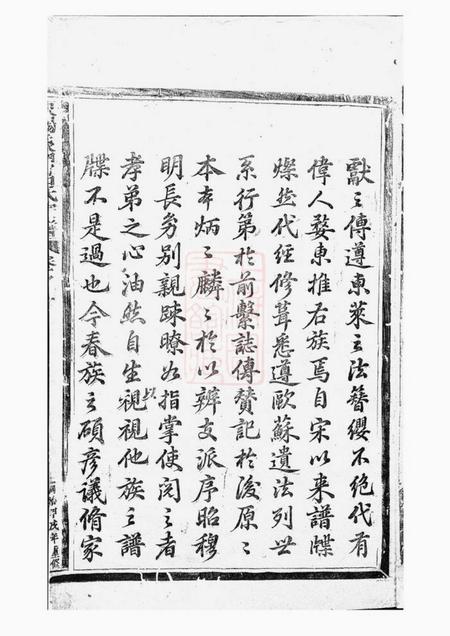 獻之傳遵東萊之法簪纓不絕代有
偉人婺東推右族焉自宋以來譜牒
燦然代經修葺悉遵歐蘇遺法列世
系行第於前繫誌傳贊記於後原〻
本本炳〻麟〻於以辨支派序昭穆
明長幼別親踈瞭如指掌使閱之者
孝弟之心油然自生視以視他族之譜
牒不是過也今春族之碩彥議脩家